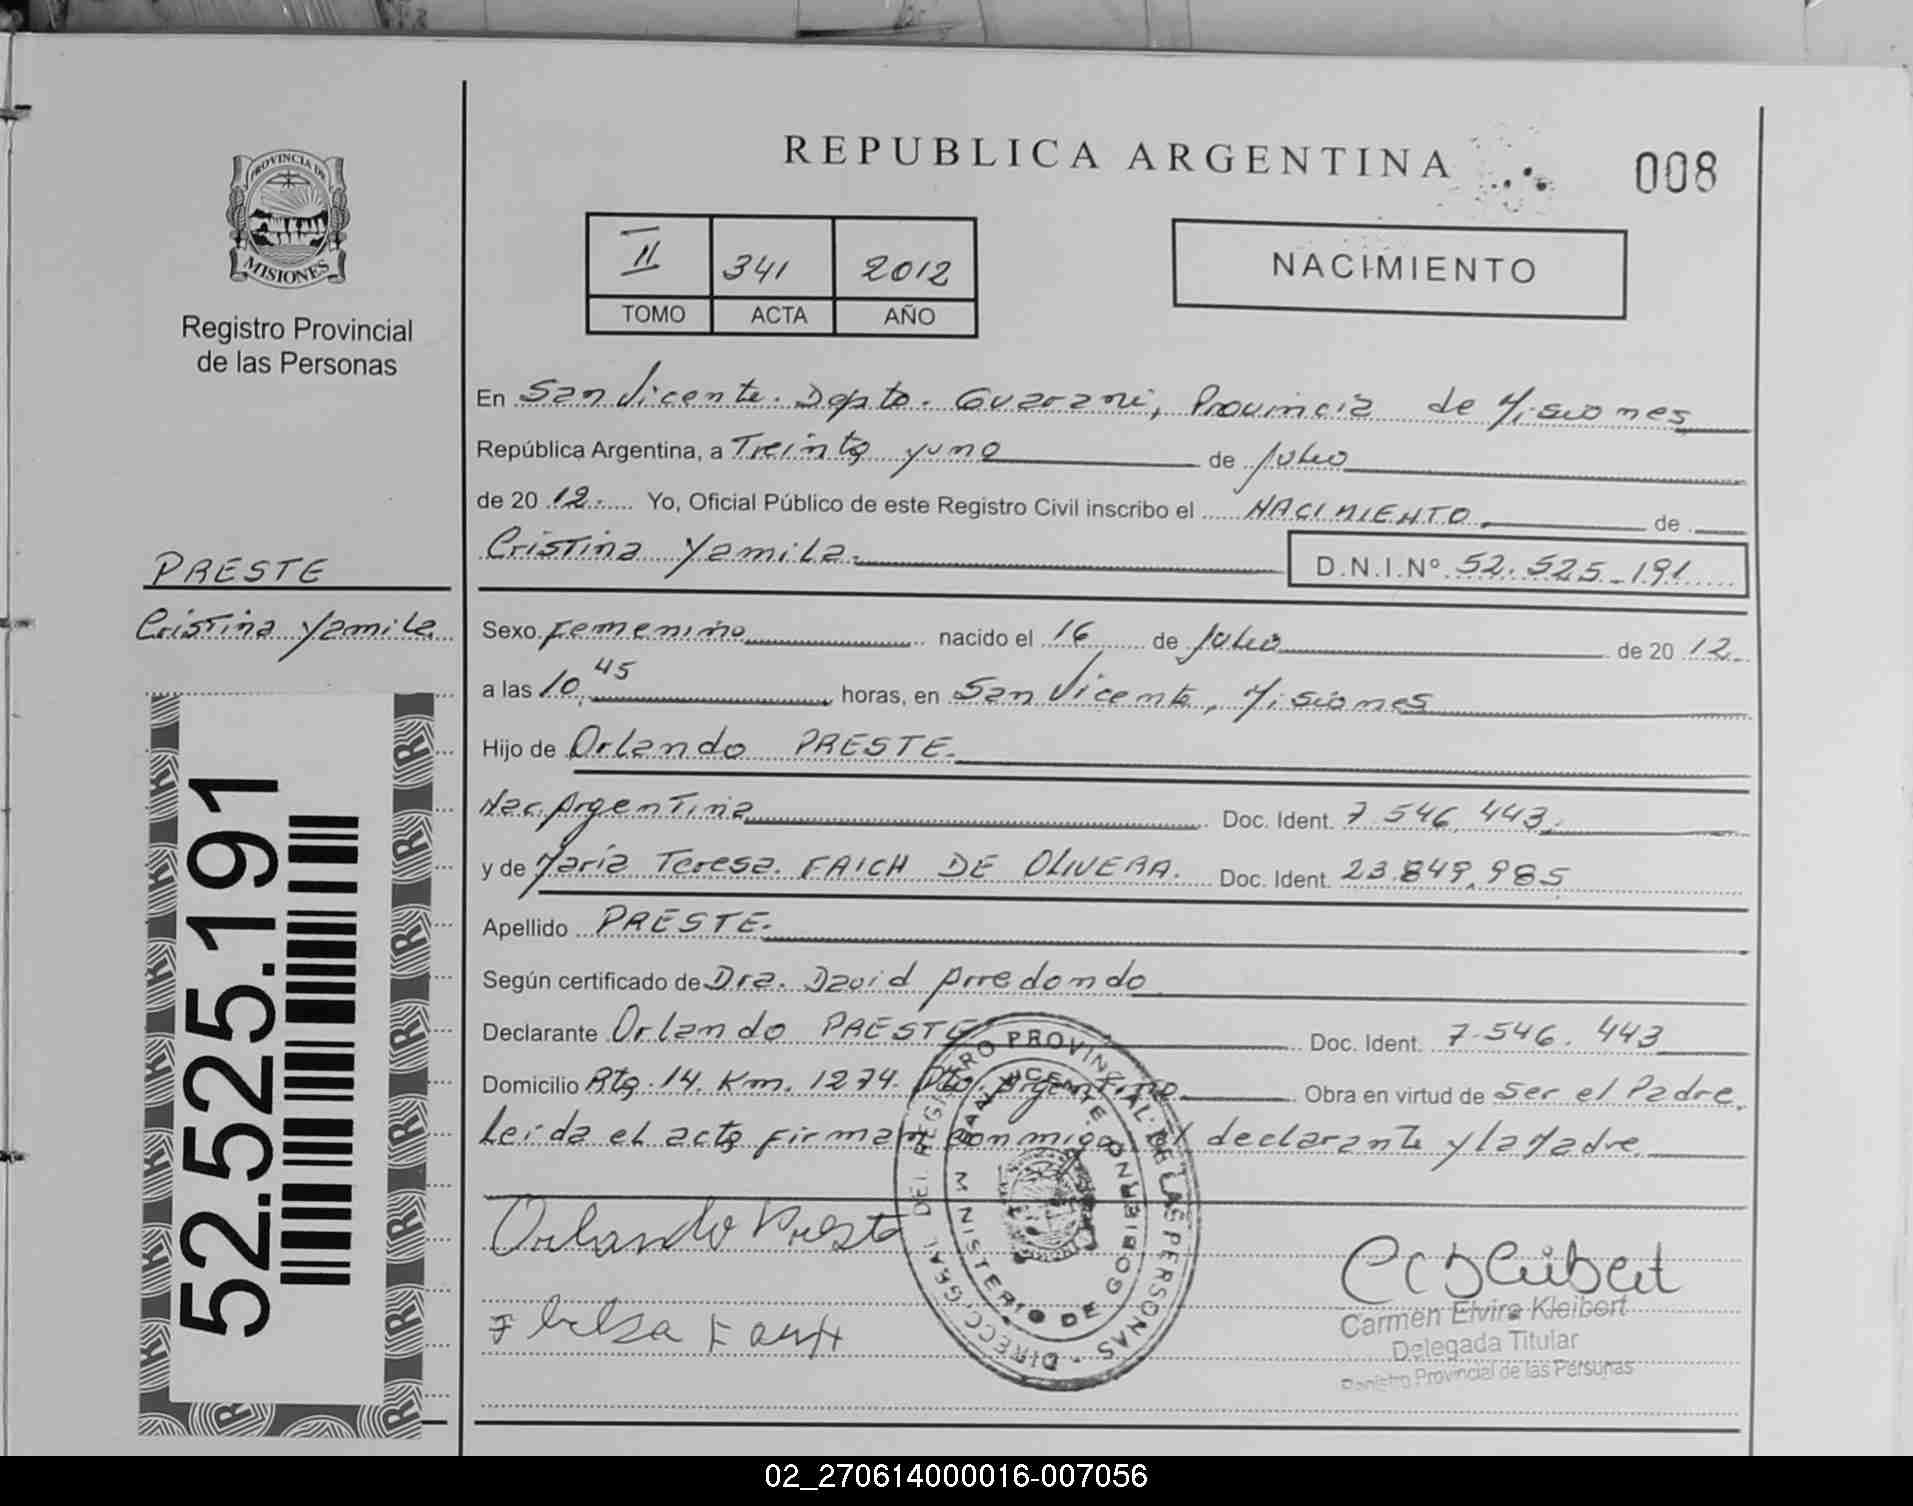 REPUBLICA ARGENTINA
008
PROVINCIA DE
MISIONES
Registro Provincial
de las Personas
II 341 2012
TOMO ACTA AÑO
NACIMIENTO
En San Vicente. Dpto. Guarani, Provincia de Misiones
República Argentina, a Treinta y uno de Julio
de 2012. Yo, Oficial Público de este Registro Civil inscribo el NACIMIENTO. de
Cristina Yamila. D.N.I.Nº 52.525.191
PRESTE
Cristina Yamila
52.525.191
Sexo Femenino nacido el 16 de Julio de 2012.
a las 10,45 horas, en San Vicente, Misiones
Hijo de Orlando PRESTE.
Nac. Argentina Doc. Ident. 7.546.443.
y de María Teresa. FAICH DE OLIVERA. Doc. Ident. 23.849.985
Apellido PRESTE.
Según certificado de Dra. David Arredondo
Declarante Orlando PRESTE Doc. Ident. 7.546.443
Domicilio Rta. 14. Km. 1274. Pto. Argentino. Obra en virtud de Ser el Padre.
Leida el acta firman conmigo el declarante y la Madre.
DIRECC. GRAL. DEL REGISTRO PROVINCIAL DE LAS PERSONAS
SAN VICENTE
MINISTERIO DE GOBIERNO
Orlando Preste
Carmen Elvira Kleibert
Delegada Titular
Registro Provincial de las Personas
02_270614000016-007056